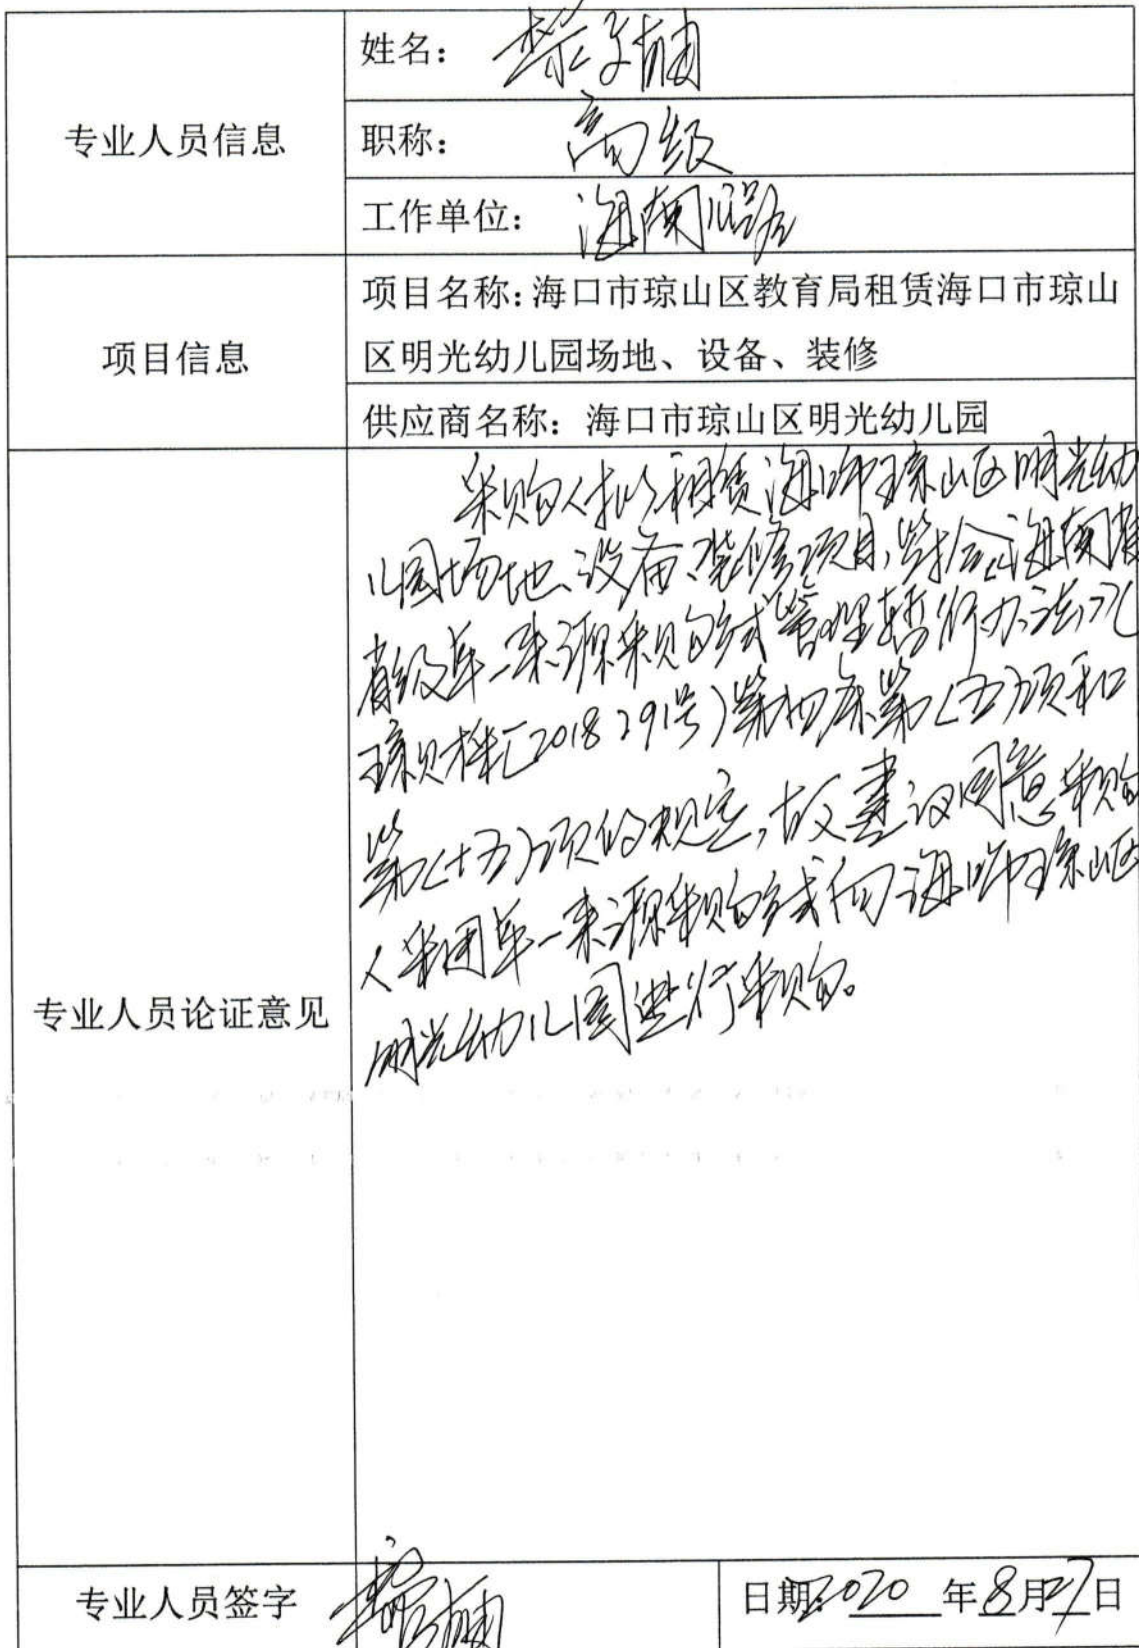 姓名：
专业人员信息
职称： 高级
工作单位： 海南
项目名称：海口市琼山区教育局租赁海口市琼山
项目信息
区明光幼儿园场地、设备、装修
供应商名称：海口市琼山区明光幼儿园
采购人拟租赁海口市琼山区明光幼
儿园场地、设备、装修项目，符合《海南省
省级单一来源采购方式管理暂行办法》（
琼财采〔2018 291号）第四条第（五）项和
第（十五）项的规定，故建议同意采购
人采用单一来源采购方式向海口市琼山区
明光幼儿园进行采购。
专业人员论证意见
专业人员签字
日期：2020 年8月27日